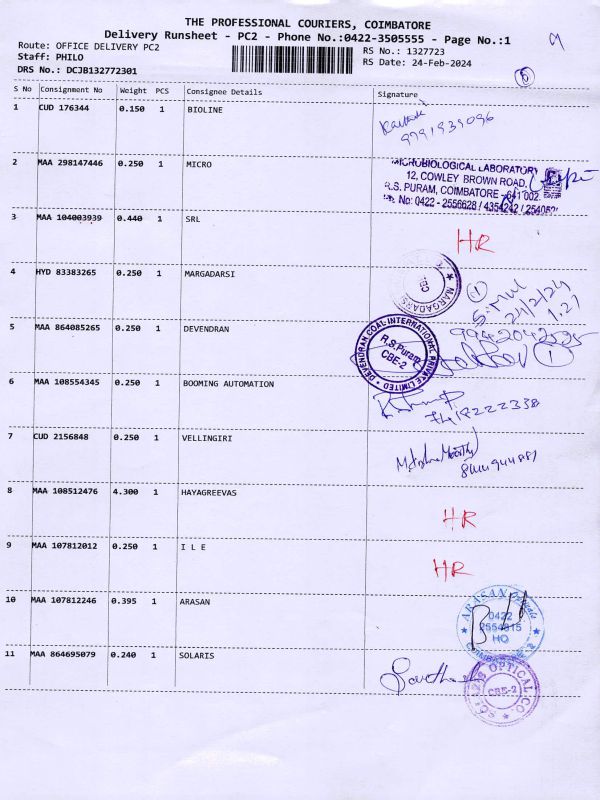 THE PROFESSIONAL COURIERS, COIMBATORE
Delivery Runsheet - PC2 - Phone No.:0422-3505555 - Page No.:1
Route: OFFICE DELIVERY PC2
RS No.: 1327723
Staff: PHILO
RS Date: 24-Feb-2024
DRS No.: DCJB132772301
S No Consignment No Weight PCS Consignee Details Signature
1 CUD 176344 0.150 1 BIOLINE
2 MAA 298147446 0.250 1 MICRO
MICROBIOLOGICAL LABORATORY
12, COWLEY BROWN ROAD,
R.S. PURAM, COIMBATORE - 641 002.
No: 0422 - 2556628 / 4354242 /
3 MAA 104003939 0.440 1 SRL
HR
4 HYD 83383265 0.250 1 MARGADARSI
MARGADARSI
24/2/24
1.21
5 MAA 864085265 0.250 1 DEVENDRAN
DEVENDRAN COAL INTERNATIONAL PRIVATE LIMITED
R.S.Puram
CBE-2
1
6 MAA 108554345 0.250 1 BOOMING AUTOMATION
7 CUD 2156848 0.250 1 VELLINGIRI
8 MAA 108512476 4.300 1 HAYAGREEVAS
HR
9 MAA 107812012 0.250 1 I L E
HR
10 MAA 107812246 0.395 1 ARASAN
ARASAN
0422
2554615
HO
11 MAA 864695079 0.240 1 SOLARIS
OPTICAL CO.
CBE-2